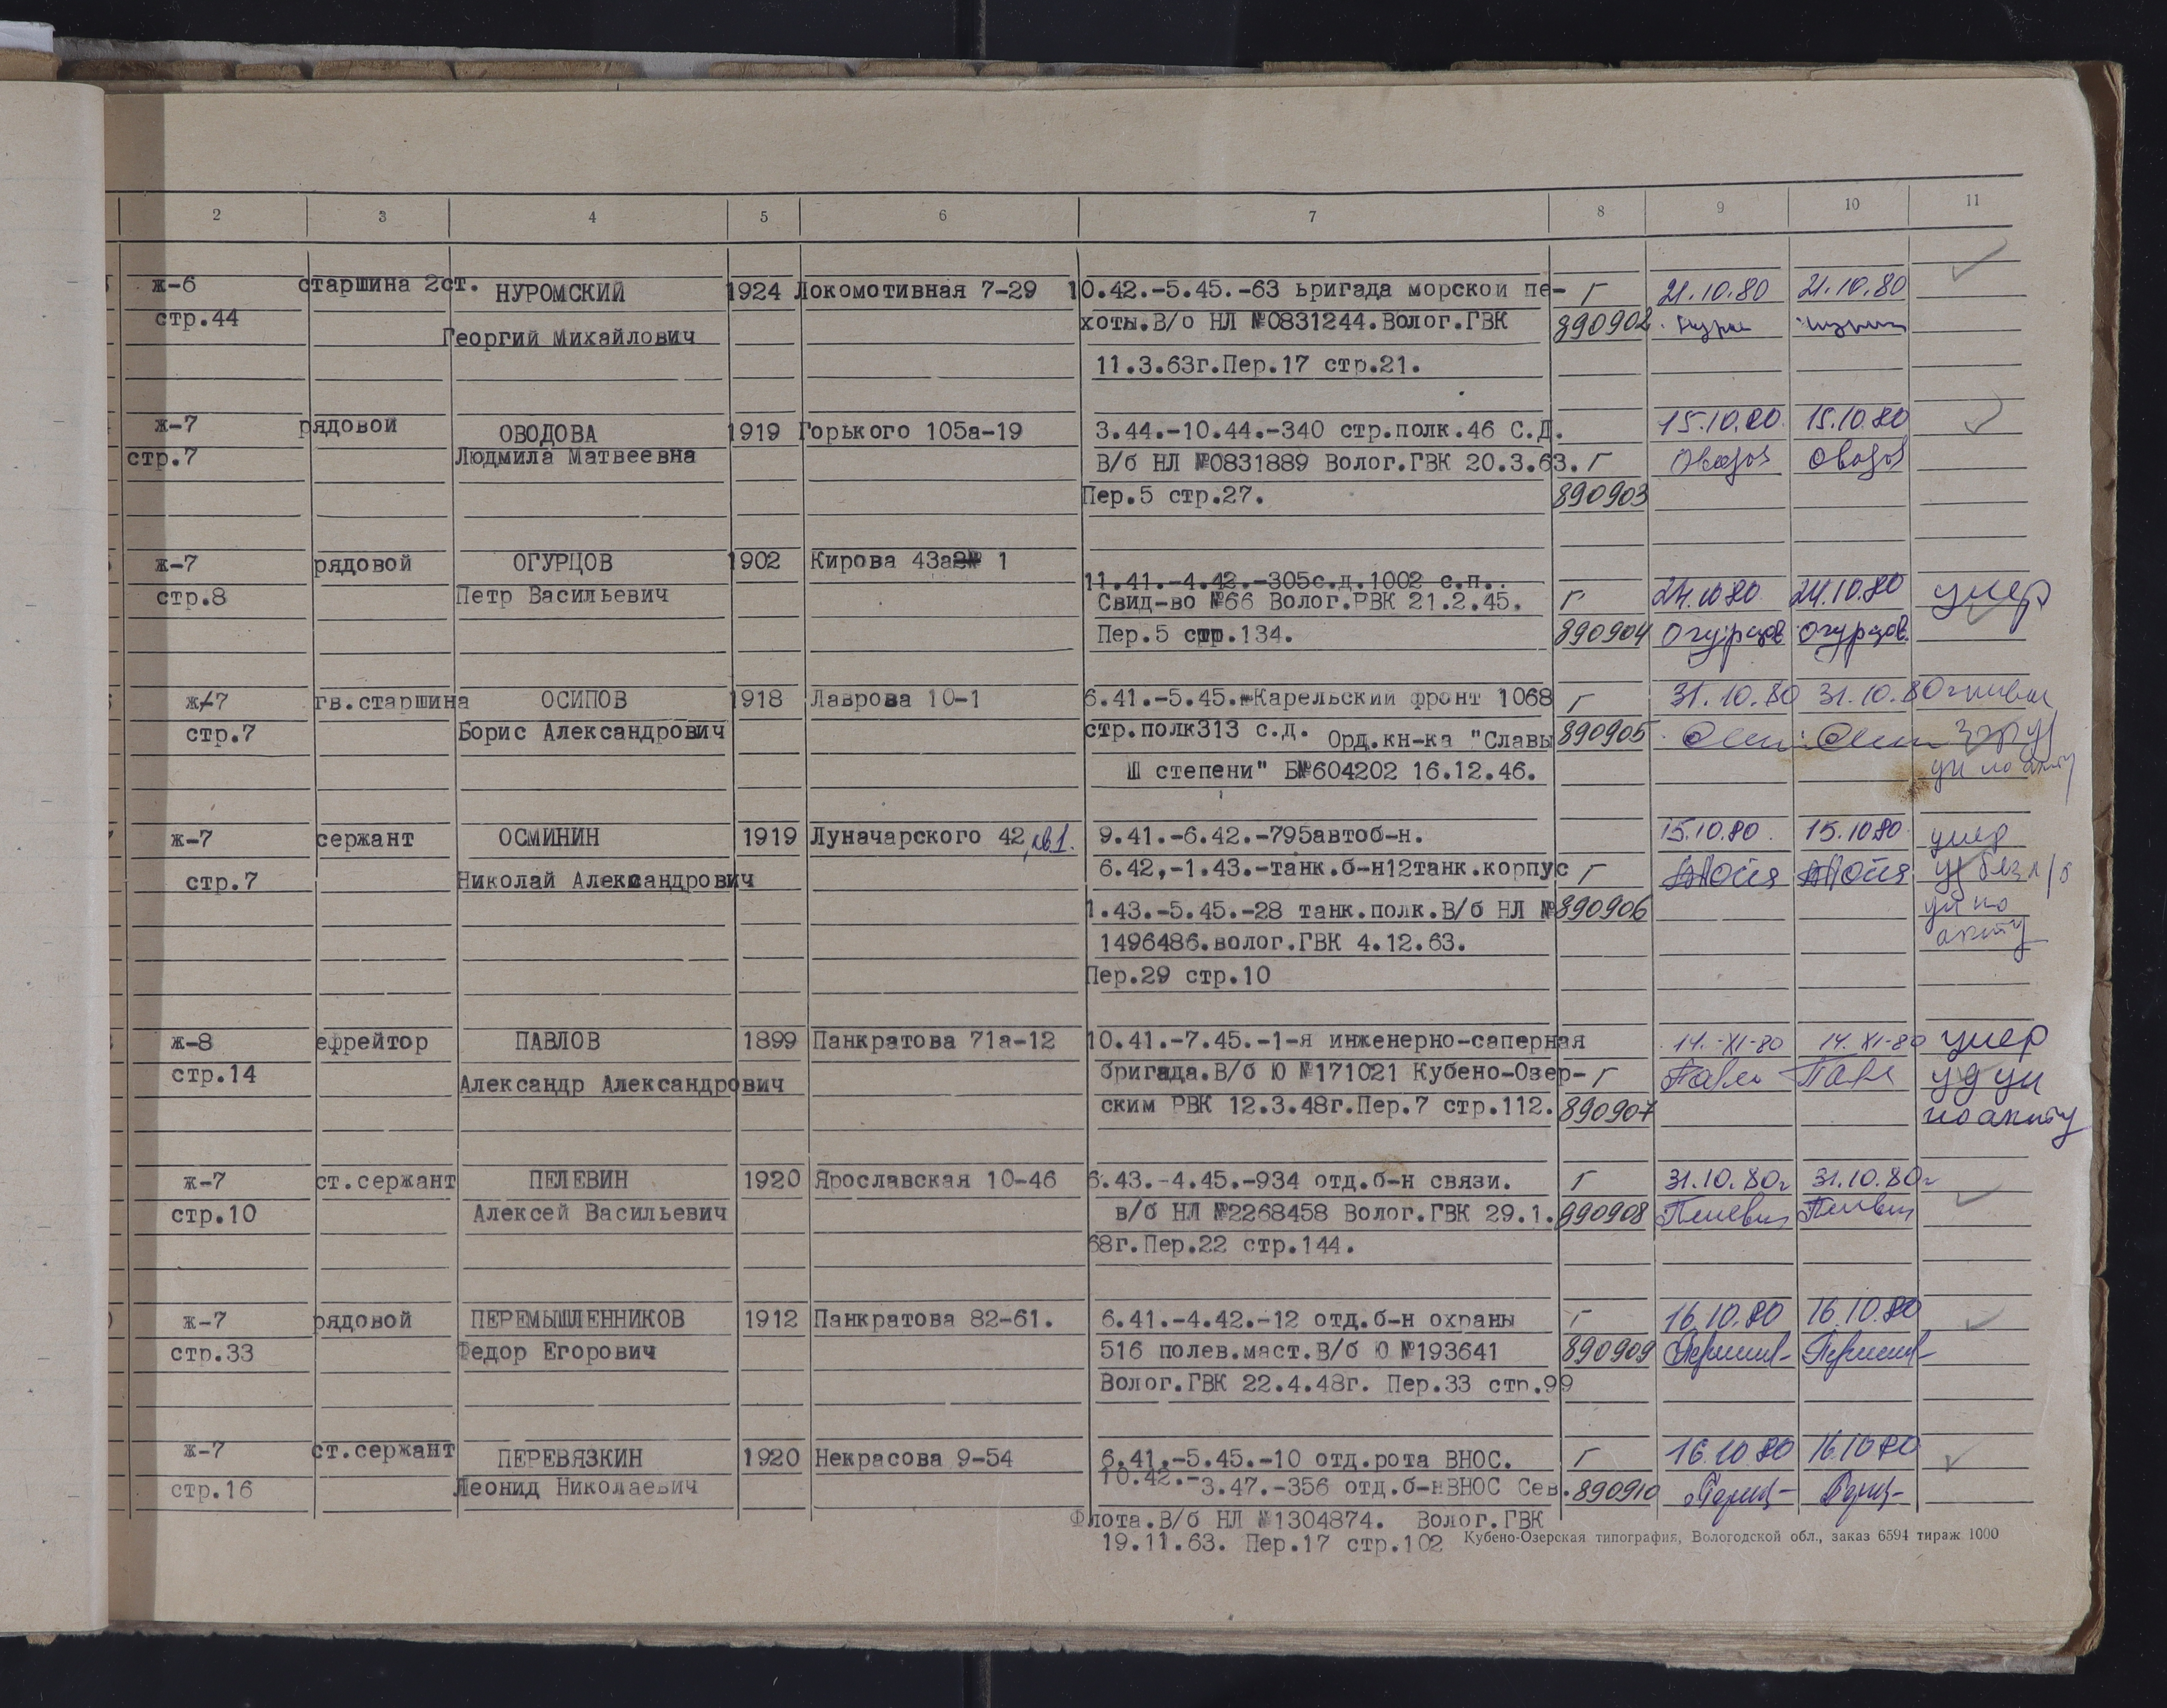 2 3 4 5 6 7 8 9 10 11
ж-6 старшина 2ст. НУРОМСКИЙ 1924 Локомотивная 7-29 10.42.-5.45.-63 бригада морской пе- Г 21.10.80 21.10.80
стр.44 Георгий Михайлович хоты.В/о НЛ №0831244.Волог.ГВК 890902
11.3.63г.Пер.17 стр.21.
ж-7 рядовой ОВОДОВА 1919 Горького 105а-19 3.44.-10.44.-340 стр.полк.46 С.Д. 15.10.80 15.10.80
стр.7 Людмила Матвеевна В/б НЛ №0831889 Волог.ГВК 20.3.63. Г Овод Овод
Пер.5 стр.27. 890903
ж-7 рядовой ОГУРЦОВ 1902 Кирова 43а 1 11.41.-4.42.-305с.д.1002 с.п..
стр.8 Петр Васильевич Свид-во №66 Волог.РВК 21.2.45. Г 24.10.80 24.10.80 умер
Пер.5 стр.134. 890904 Огурцов Огурцов
ж-7 гв.старшина ОСИПОВ 1918 Лаврова 10-1 6.41.-5.45.-Карельский фронт 1068 Г 31.10.80 31.10.80г
стр.7 Борис Александрович стр.полк313 с.д. Орд.кн-ка "Славы 890905
Ш степени" Б№604202 16.12.46. уч по акту
ж-7 сержант ОСМИНИН 1919 Луначарского 42, кв.1. 9.41.-6.42.-795автоб-н. 15.10.80 15.10.80 умер
стр.7 Николай Александрович 6.42,-1.43.-танк.б-н12танк.корпус Г
1.43.-5.45.-28 танк.полк.В/б НЛ № 890906 уч по
1496486.волог.ГВК 4.12.63. акту
Пер.29 стр.10
ж-8 ефрейтор ПАВЛОВ 1899 Панкратова 71а-12 10.41.-7.45.-1-я инженерно-саперная 14.-XI-80 14.XI-80 умер
стр.14 Александр Александрович бригада.В/б Ю №171021 Кубено-Озер- Г Павло Павл уд уч
ским РВК 12.3.48г.Пер.7 стр.112. 890907 по акту
ж-7 ст.сержант ПЕЛЕВИН 1920 Ярославская 10-46 6.43.-4.45.-934 отд.б-н связи. Г 31.10.80г 31.10.80г
стр.10 Алексей Васильевич в/б НЛ №2268458 Волог.ГВК 29.1. 890908 Пелевин Пелевин
68г.Пер.22 стр.144.
ж-7 рядовой ПЕРЕМЫШЛЕННИКОВ 1912 Панкратова 82-61. 6.41.-4.42.-12 отд.б-н охраны Г 16.10.80 16.10.80
стр.33 Федор Егорович 516 полев.маст.В/б Ю №193641 890909
Волог.ГВК 22.4.48г. Пер.33 стр.99
ж-7 ст.сержант ПЕРЕВЯЗКИН 1920 Некрасова 9-54 6.41.-5.45.-10 отд.рота ВНОС. Г 16.10.80 16.10.80
стр.16 Леонид Николаевич 10.42.-3.47.-356 отд.б-нВНОС Сев. 890910
Флота.В/б НЛ №1304874. Волог.ГВК
19.11.63. Пер.17 стр.102 Кубено-Озерская типография, Вологодской обл., заказ 6594 тираж 1000